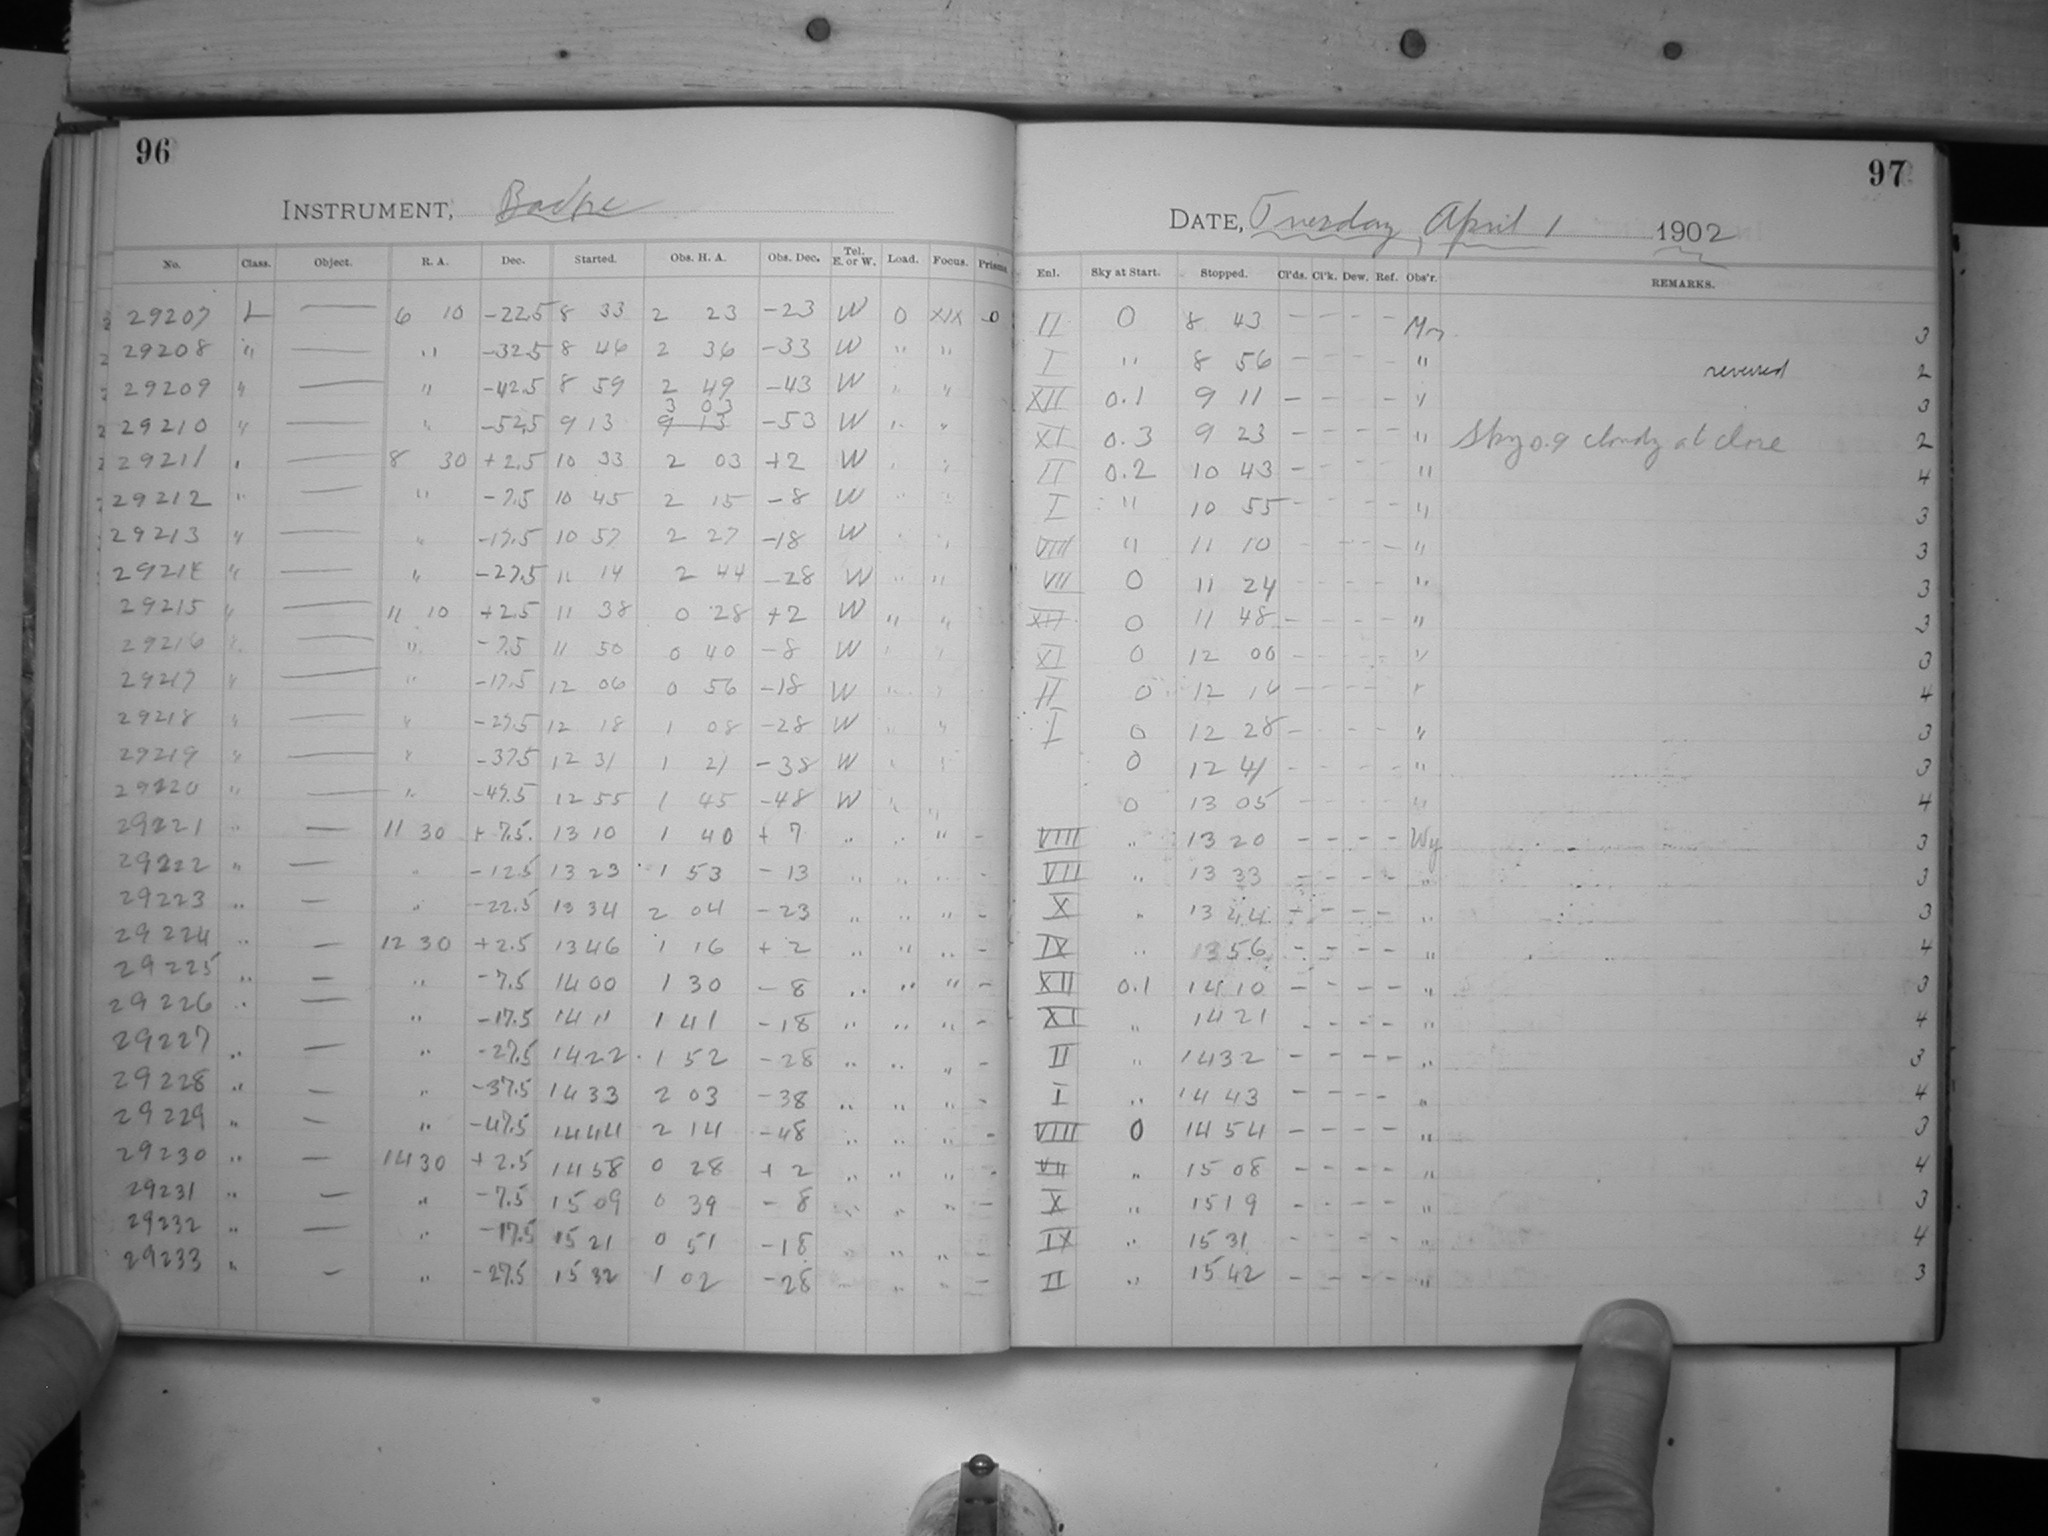 96
INSTRUMENT, Bache
No. Class. Object. R. A. Dec. Started. Obs. H. A. Obs. Dec. Tel. E. or W. Load. Focus. Prisms.
29207 L — 6 10 -22.5 8 33 2 23 -23 W 0 XIX -0
29208 " — " -32.5 8 46 2 36 -33 W " "
29209 " — " -42.5 8 59 2 49 -43 W " "
3 03
29210 " — " -52.5 9 13 9 13 -53 W " "
29211 " — 8 30 +2.5 10 33 2 03 +2 W " "
29212 " — " -7.5 10 45 2 15 -8 W " "
29213 " — " -17.5 10 57 2 27 -18 W " "
29214 " — " -27.5 11 14 2 44 -28 W " "
29215 " — 11 10 +2.5 11 38 0 28 +2 W " "
29216 " — " -7.5 11 50 0 40 -8 W " "
29217 " — " -17.5 12 06 0 56 -18 W " "
29218 " — " -27.5 12 18 1 08 -28 W " "
29219 " — " -37.5 12 31 1 21 -38 W " "
29220 " — " -47.5 12 55 1 45 -48 W " "
29221 " — 11 30 +7.5 13 10 1 40 +7 " " " -
29222 " — " -12.5 13 23 1 53 -13 " " " -
29223 " — " -22.5 13 34 2 04 -23 " " " -
29224 " — 12 30 +2.5 13 46 1 16 +2 " " " -
29225 " — " -7.5 14 00 1 30 -8 " " " -
29226 " — " -17.5 14 11 1 41 -18 " " " -
29227 " — " -27.5 14 22 1 52 -28 " " " -
29228 " — " -37.5 14 33 2 03 -38 " " " -
29229 " — " -47.5 14 44 2 14 -48 " " " -
29230 " — 14 30 +2.5 14 58 0 28 +2 " " " -
29231 " — " -7.5 15 09 0 39 -8 " " " -
29232 " — " -17.5 15 21 0 51 -18 " " " -
29233 " — " -27.5 15 32 1 02 -28 " " " -
97
DATE, Tuesday, April 1 1902
Enl. Sky at Start. Stopped. Cl'ds. Cl'k. Dew. Ref. Obs'r. REMARKS.
II 0 8 43 - - - - 3
I " 8 56 - - - - " reversed 2
XII 0.1 9 11 - - - - " 3
XI 0.3 9 23 - - - - " Sky 0.9 cloudy at close 2
II 0.2 10 43 - - - - " 4
I " 10 55 - - - - " 3
VIII " 11 10 - - - - " 3
VII 0 11 24 - - - - " 3
XII 0 11 48 - - - - " 3
XI 0 12 00 - - - - " 3
II 0 12 16 - - - - " 4
I 0 12 28 - - - - " 3
0 12 41 - - - - " 3
0 13 05 - - - - " 4
VIII " 13 20 - - - - Wy 3
VII " 13 33 - - - - " 3
X " 13 44 - - - - " 3
IX " 13 56 - - - - " 4
XII 0.1 14 10 - - - - " 3
XI " 14 21 - - - - " 4
II " 14 32 - - - - " 3
I " 14 43 - - - - " 4
VIII 0 14 54 - - - - " 3
VII " 15 08 - - - - " 4
X " 15 19 - - - - " 3
IX " 15 31 - - - - " 4
II " 15 42 - - - - " 3